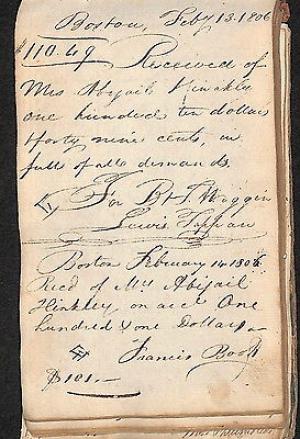 Boston, Feby 13. 1806
$110.49 Received of
Mrs Abijail Hinkley
one hundred ten dollars
& forty nine cents, in
full of all demands
For B & T. Wiggin
Lewis Tappan
Boston February 14 1806
Recd of Mrs Abijail
Hinkley on acct One
hundred & one Dollars
Francis Booth
$101.—